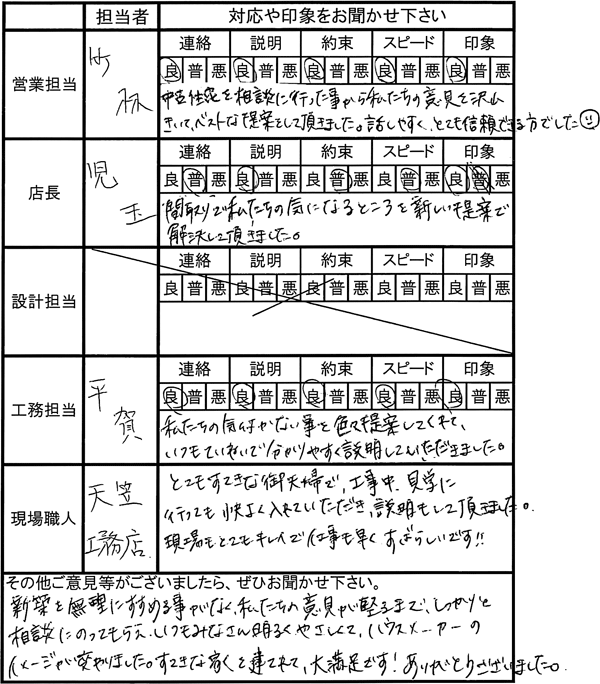 担当者 対応や印象をお聞かせ下さい
営業担当 竹林
連絡 説明 約束 スピード 印象
良 普 悪 良 普 悪 良 普 悪 良 普 悪 良 普 悪
中古住宅を相談に行った事から私たちの意見を沢山
きいて、ベストな提案をして頂きました。話しやすく、とても信頼できる方でした
店長 児玉
連絡 説明 約束 スピード 印象
良 普 悪 良 普 悪 良 普 悪 良 普 悪 良 普 悪
間取りで私たちの気になるところを新しい提案で
解決して頂きました。
設計担当
連絡 説明 約束 スピード 印象
良 普 悪 良 普 悪 良 普 悪 良 普 悪 良 普 悪
工務担当 平賀
連絡 説明 約束 スピード 印象
良 普 悪 良 普 悪 良 普 悪 良 普 悪 良 普 悪
私たちの気付かない事を色々提案してくれて、
いつもていねいで分かりやすく説明していただきました。
現場職人 天笠工務店
とてもすてきな御夫婦で、工事中、見学に
行っても快よく入れていただき、説明もして頂きました。
現場もとてもキレイで仕事も早くすばらしいです!!
その他ご意見等がございましたら、ぜひお聞かせ下さい。
新築を無理にすすめる事がなく、私たちの意見が堅るまで、しっかりと
相談にのってもらえ、いつもみなさん明るくやさしくて、ハウスメーカーの
イメージが変わりました。すてきな家を建てれて、大満足です!ありがとうございました。